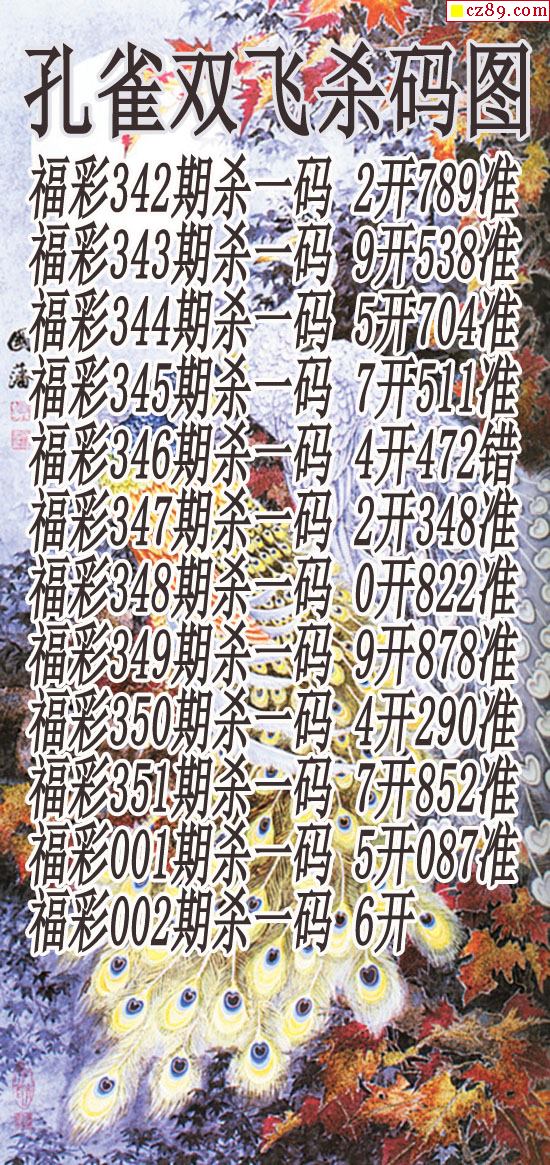 cz89.com
孔雀双飞杀码图
福彩342期杀一码 2开789准
福彩343期杀一码 9开538准
福彩344期杀一码 5开704准
福彩345期杀一码 7开511准
福彩346期杀一码 4开472错
福彩347期杀一码 2开348准
福彩348期杀一码 0开822准
福彩349期杀一码 9开878准
福彩350期杀一码 4开290准
福彩351期杀一码 7开852准
福彩001期杀一码 5开087准
福彩002期杀一码 6开